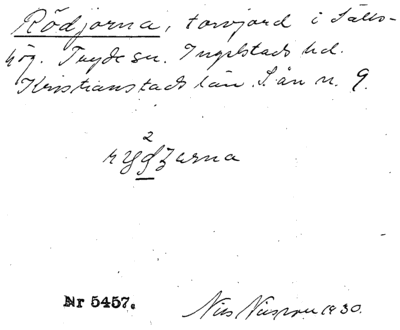 Rödjorna, torvjord i Fälls-
hög. Tryde sn. Ingelstads hd.
Kristianstads län. S. än n. 9.
2
Nr 5457.
Nils Nilsson 1930.